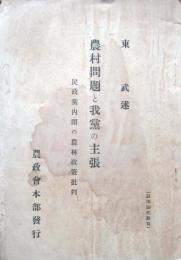 東武述
農村問題と我黨の主張
民政黨内閣の農林政策批判
農政會本部發行